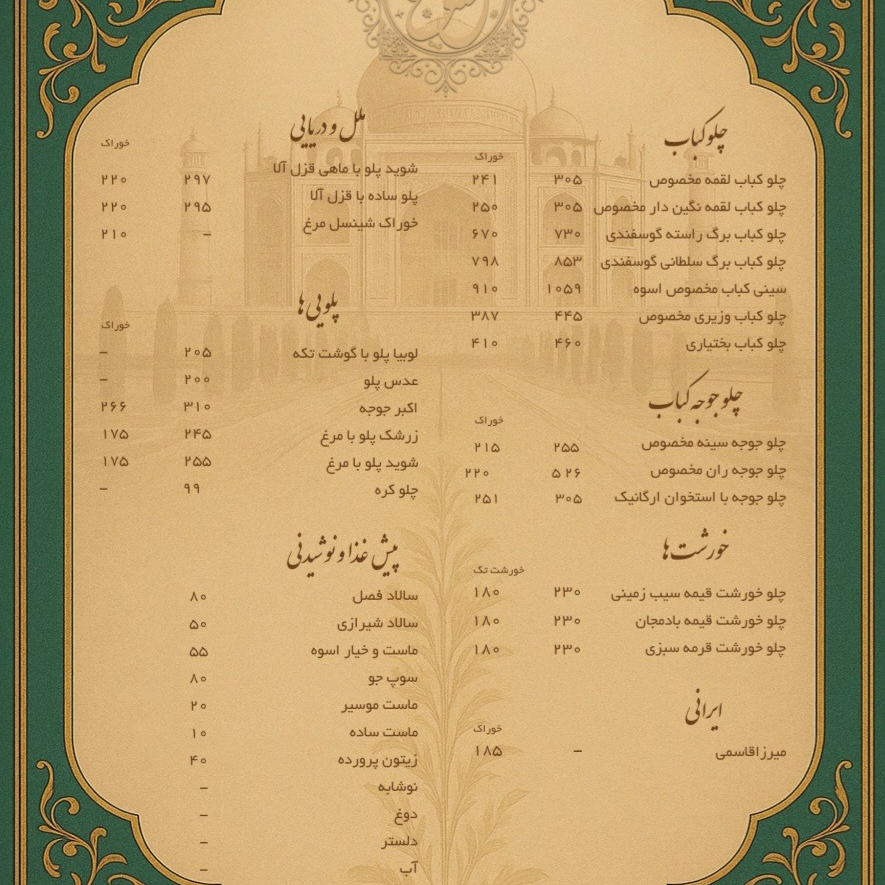 چلوکباب
خوراک
چلو کباب لقمه مخصوص ۳۰۵ ۲۴۱
چلو کباب لقمه نگین دار مخصوص ۳۰۵ ۲۵۰
چلو کباب برگ راسته گوسفندی ۷۳۰ ۶۷۰
چلو کباب برگ سلطانی گوسفندی ۸۵۳ ۷۹۸
سینی کباب مخصوص اسوه ۱۰۵۹ ۹۱۰
چلو کباب وزیری مخصوص ۴۴۵ ۳۸۷
چلو کباب بختیاری ۴۶۰ ۴۱۰
چلو جوجه کباب
خوراک
چلو جوجه سینه مخصوص ۲۵۵ ۲۱۵
چلو جوجه ران مخصوص ۵ ۲۶ ۲۲۰
چلو جوجه با استخوان ارگانیک ۳۰۵ ۲۵۱
خورشت‌ها
خورشت تک
چلو خورشت قیمه سیب زمینی ۲۳۰ ۱۸۰
چلو خورشت قیمه بادمجان ۲۳۰ ۱۸۰
چلو خورشت قرمه سبزی ۲۳۰ ۱۸۰
ایرانی
خوراک
میرزاقاسمی - ۱۸۵
ملل و دریایی
خوراک
شوید پلو با ماهی قزل آلا ۲۹۷ ۲۲۰
پلو ساده با قزل آلا ۲۹۵ ۲۲۰
خوراک شینسل مرغ - ۲۱۰
پلویی‌ها
خوراک
لوبیا پلو با گوشت تکه ۲۰۵ -
عدس پلو ۲۰۰ -
اکبر جوجه ۳۱۰ ۲۶۶
زرشک پلو با مرغ ۲۴۵ ۱۷۵
شوید پلو با مرغ ۲۵۵ ۱۷۵
چلو کره ۹۹ -
پیش غذا و نوشیدنی
سالاد فصل ۸۰
سالاد شیرازی ۵۰
ماست و خیار اسوه ۵۵
سوپ جو ۸۰
ماست موسیر ۲۰
ماست ساده ۱۰
زیتون پرورده ۴۰
نوشابه -
دوغ -
دلستر -
آب -